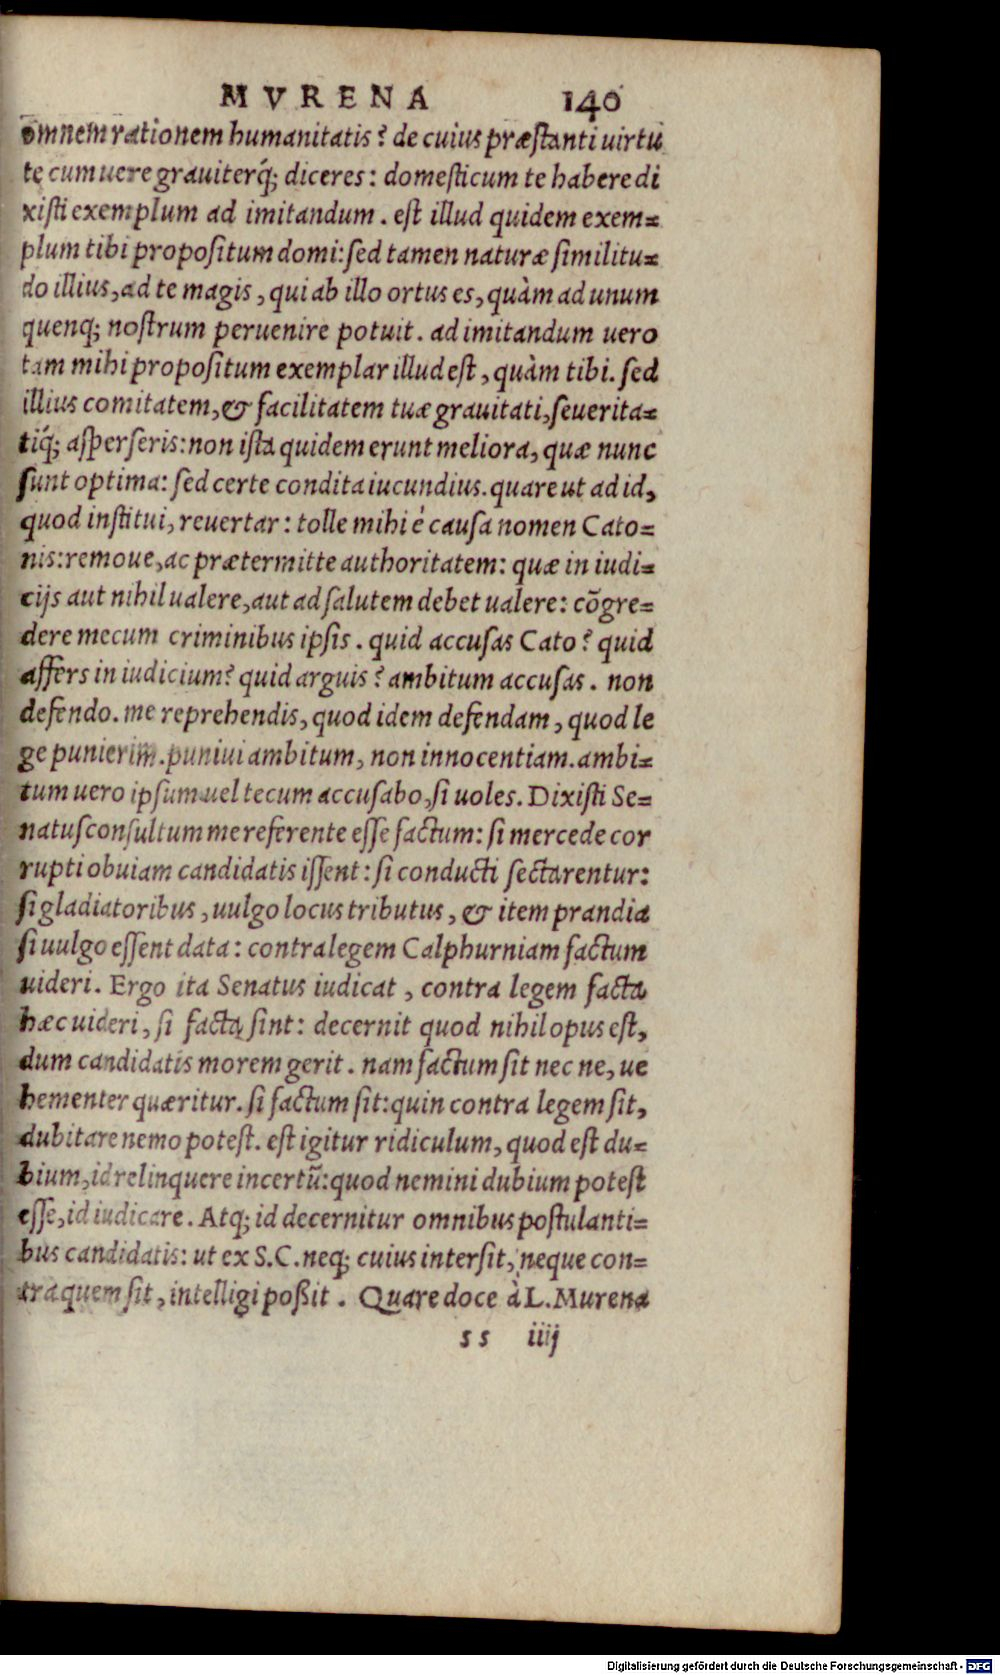 MVRENA 140
omnem rationem humanitatis? de cuius præstanti uirtu
te cum uere grauiterq́; diceres: domesticum te habere di
xisti exemplum ad imitandum. est illud quidem exem=
plum tibi propositum domi: sed tamen naturæ similitu=
do illius, ad te magis, qui ab illo ortus es, quàm ad unum
quenq; nostrum peruenire potuit. ad imitandum uero
tam mihi propositum exemplar illud est, quàm tibi. sed
illius comitatem, & facilitatem tuæ grauitati, seuerita=
tiq́; asperseris: non ista quidem erunt meliora, quæ nunc
sunt optima: sed certe condita iucundius. quare ut ad id,
quod institui, reuertar: tolle mihi è causa nomen Cato=
nis: remoue, ac prætermitte authoritatem: quæ in iudi=
cijs aut nihil ualere, aut ad salutem debet ualere: cõgre=
dere mecum criminibus ipsis. quid accusas Cato? quid
affers in iudicium? quid arguis? ambitum accusas. non
defendo. me reprehendis, quod idem defendam, quod le
ge punierim. puniui ambitum, non innocentiam. ambi=
tum uero ipsum uel tecum accusabo, si uoles. Dixisti Se=
natusconsultum me referente esse factum: si mercede cor
rupti obuiam candidatis issent: si conducti sectarentur:
si gladiatoribus, uulgo locus tributus, & item prandia
si uulgo essent data: contra legem Calphurniam factum
uideri. Ergo ita Senatus iudicat, contra legem facta
hæc uideri, si facta sint: decernit quod nihil opus est,
dum candidatis morem gerit. nam factum sit nec ne, ue
hementer quæritur. si factum sit: quin contra legem sit,
dubitare nemo potest. est igitur ridiculum, quod est du=
bium, id relinquere incertũ: quod nemini dubium potest
esse, id iudicare. Atq; id decernitur omnibus postulanti=
bus candidatis: ut ex S.C. neq; cuius intersit, neque con=
tra quem sit, intelligi poßit. Quare doce à L. Murena
ss iiij
Digitalisierung gefördert durch die Deutsche Forschungsgemeinschaft - DFG